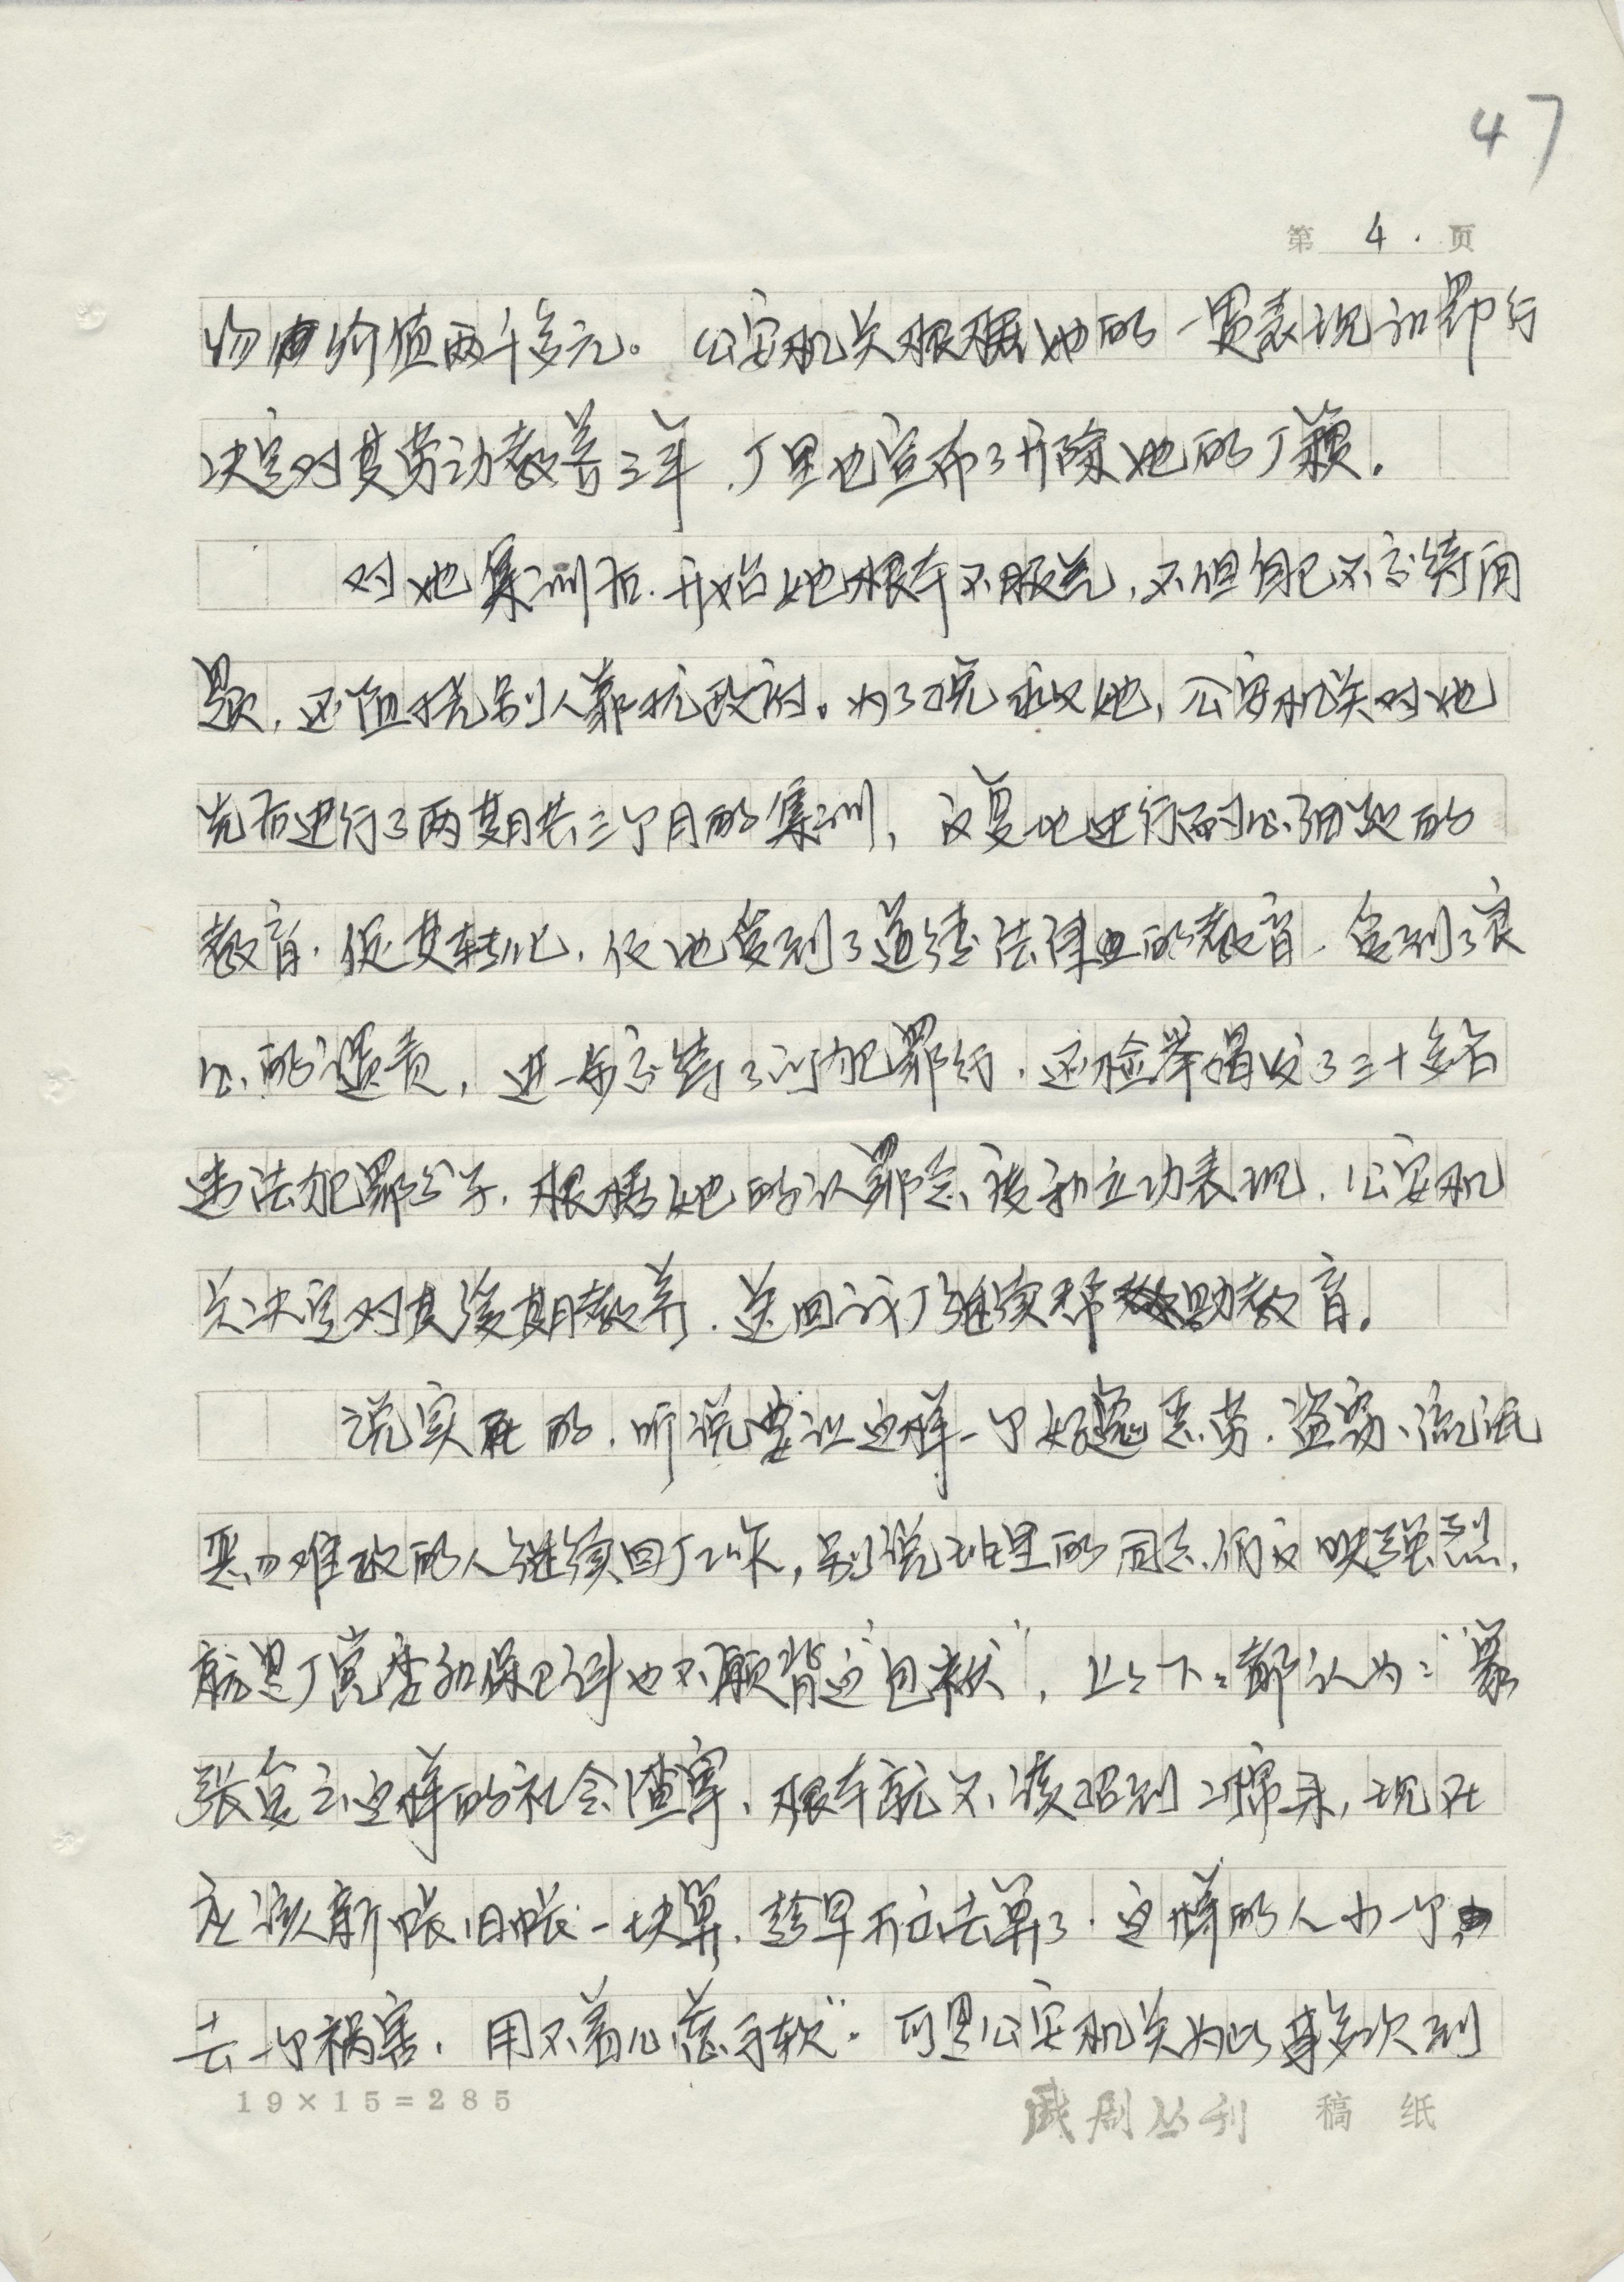 47
第 4. 页
物价值两千多元。公安机关根据她的一贯表现和罪行
决定对其劳动教养三年，厂里也宣布了开除她的厂籍。
对她集训后，开始她根本不服气，不但自己不交待问
题，还阻挠别人靠拢政府。为了挽救她，公安机关对她
先后进行了两期共三个月的集训，反复地进行耐心细致的
教育，促其转化，使她受到了道德法律的教育，受到了良
心的谴责，进一步交待了所犯罪行，还检举揭发了三十多名
违法犯罪分子，根据她的认罪态度和立功表现，公安机
关决定对其缓期教养，送回我厂继续帮助教育。
说实在的，听说要让这样一个好逸恶劳，盗窃、流氓
恶习难改的人继续回厂工作，别说站里的同志们反映强烈，
就是厂党委和保卫科也不愿背这“包袱”，上上下下都认为：“象
张这样的社会渣宰，根本就不该招到二棉来，现在
应该新帐旧帐一块算，趁早开出去算了，这样的人少一个
去一个祸害，用不着心慈手软”。可是公安机关为此多次到
19×15=285
戏剧丛刊 稿 纸